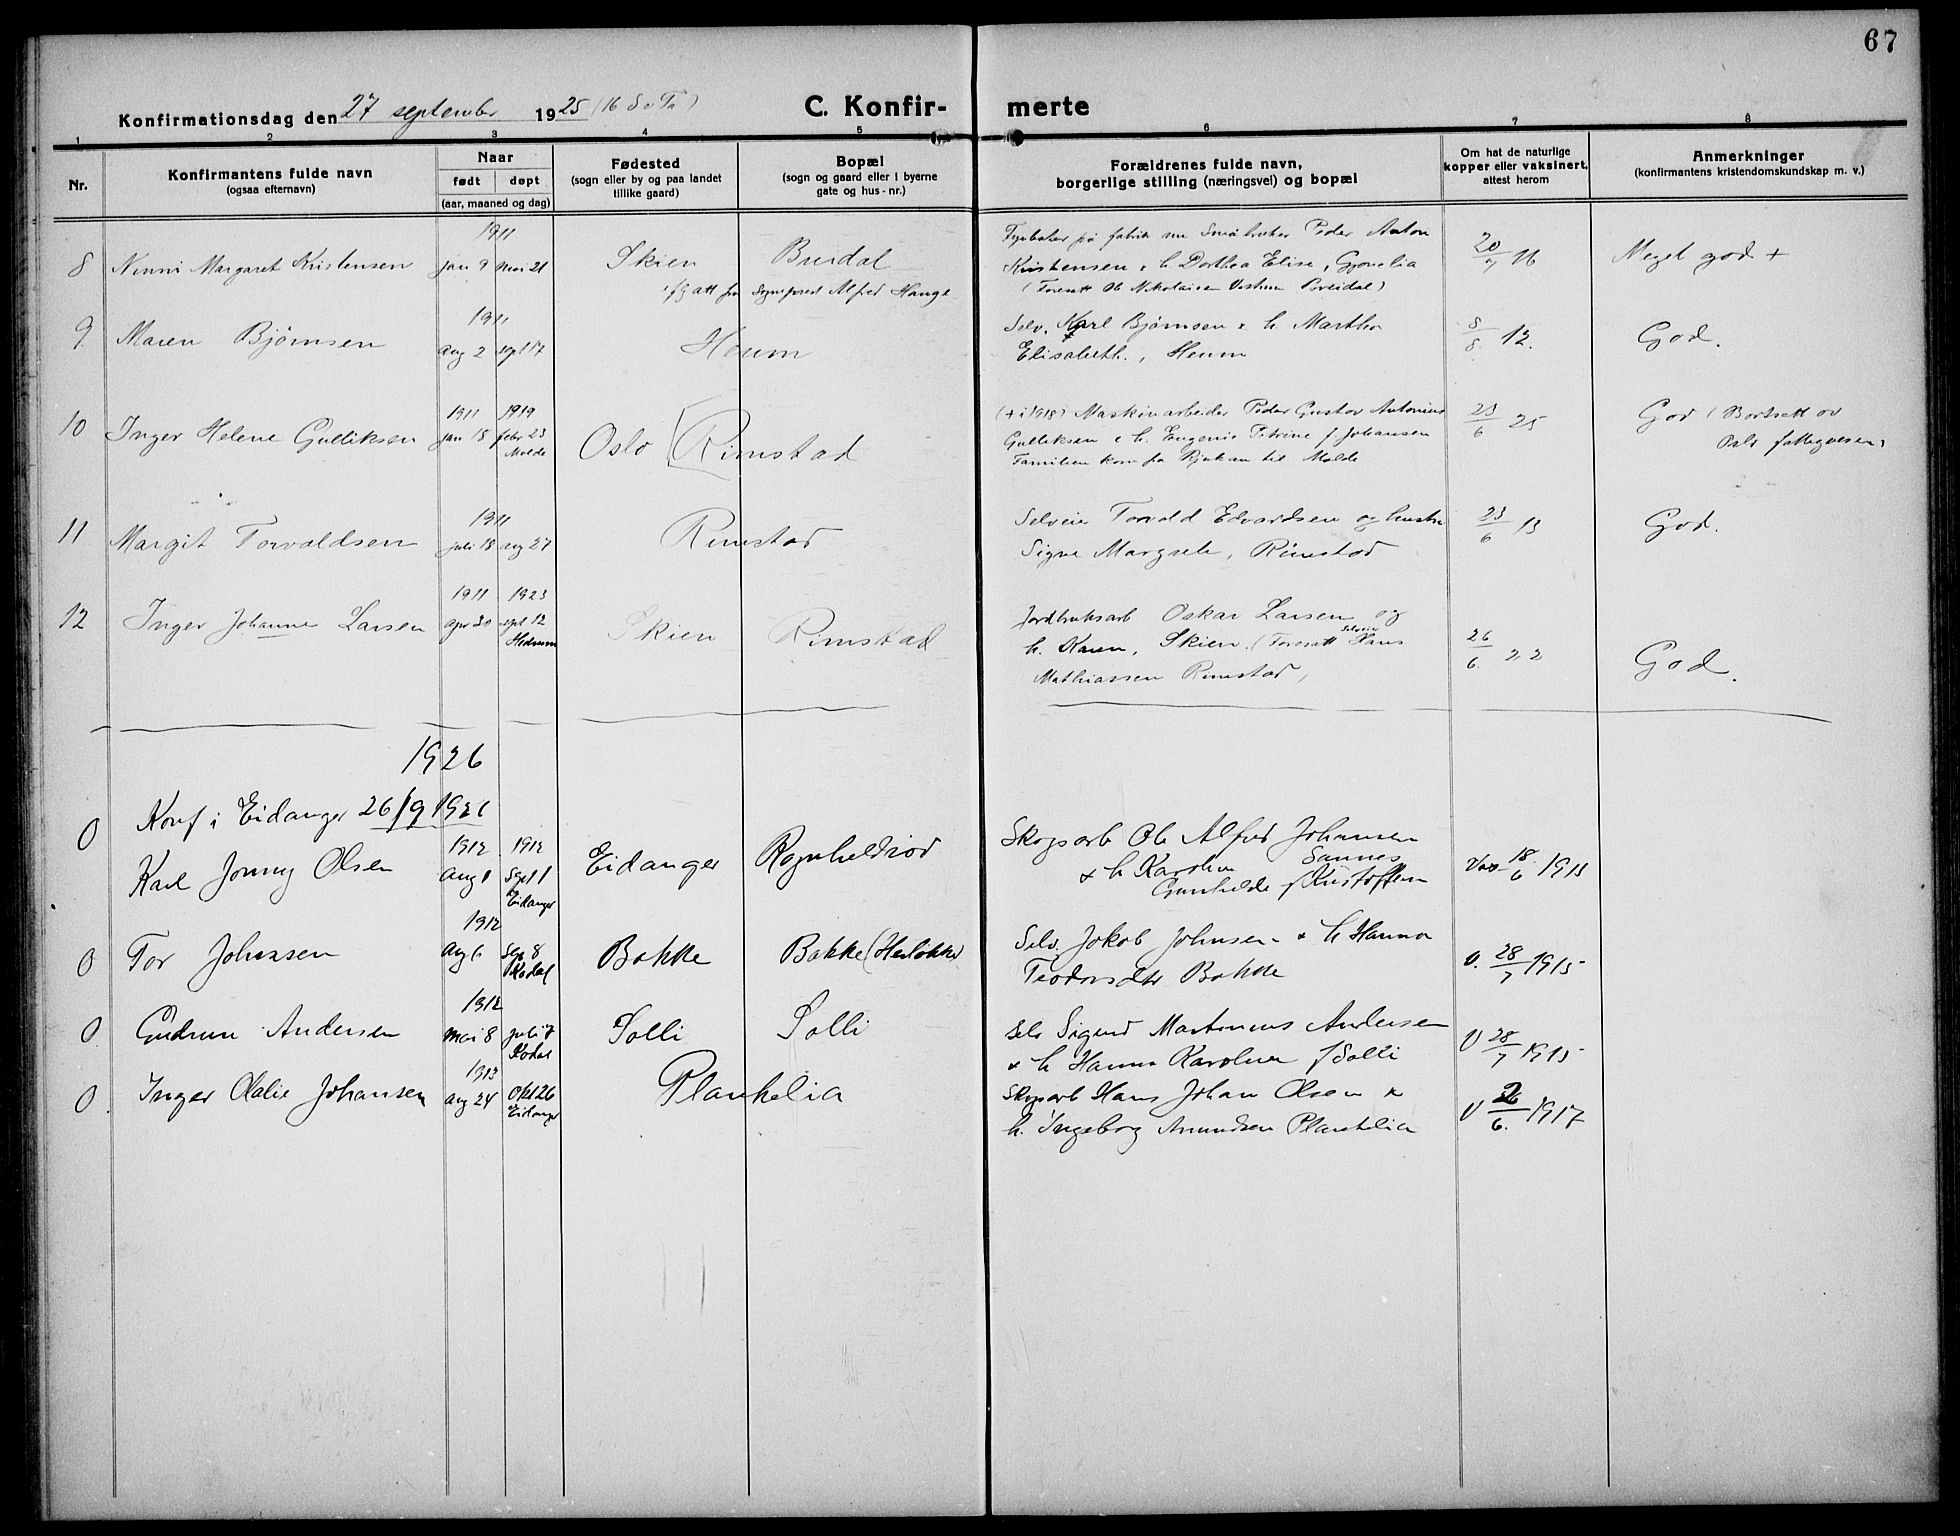 67
Konfirmationsdag den 27 september 1925 (16 S e Tr)
C. Konfirmerte
1 2 3 4 5 6 7 8
Nr.
Konfirmantens fulde navn
(ogsaa efternavn)
Naar
født døpt
(aar, maaned og dag)
Fødested
(sogn eller by og paa landet
tillike gaard)
Bopæl
(sogn og gaard eller i byerne
gate og hus-nr.)
Forældrenes fulde navn,
borgerlige stilling (næringsvei) og bopæl
Om hat de naturlige
kopper eller vaksinert,
attest herom
Anmerkninger
(konfirmantens kristendomskundskap m. v.)
8 Nenni Margaret Kristensen 1911 jan 9 mai 21 Skien Breidal
ifg att fra Sogneprest Alfred Hauge
på fabrik Småbruker Peder Anton
Kristensen & h. Dorthea Elise, Gjonalia
(Foresatt Ole Nikolaisen Breidal)
20/7 16 Meget god +
9. Maren Bjørnsen 1911 aug 2 sept 17 Heum
Selv. Karl Bjørnsen & h. Martha
Elisabeth., Heum
8/8 12. God.
10 Inger Helene Gulliksen 1911 jan 18 1919 febr 23 Molde Oslo Rimstad
(+ i 1918) Maskinarbeider Peder Gustav Antonius
Gulliksen & h. Eugenie Petrine f Johansen
Familien kom fra Rjukan til Molde
23/6 25 God (Bortsatt av
Oslo fattigvesen)
11 Margit Torvaldsen 1911 juli 18 aug 27 Rimstad
Selveier Torvald Edvardsen og hustru
Signe Margrete, Rimstad
23/6 13 God.
12 Inger Johanne Larsen 1911 apr 30 1923 sept 12 Hedrum Skien Rimstad
Jordbruksarb Oskar Larsen og
h. Karen, Skien. (Foresatt Selveier Hans
Mathiassen Rimstad)
26/6. 22 God.
1926
0 Konf i Eidanger 26/9 1926
Karl Jonny Olsen 1912 aug 1 1912 Sept 1 Eidanger Eidanger Rognheldrød
Skogsarb Ole Alfred Johansen
Sannes
& h Karoline
Gunhilde f Kristoffersen
Vax 18/6 1915
0 Tor Johnsen 1912 aug 6 Sep 8 Kodal Bakke Bakke (Herløkke)
Selv. Jakob Johnsen & h Hanna
Teodorsdtr Bakke
V. 28/7 1915
0 Gudrun Andersen 1912 mai 8 juli 7 Kodal Solli Solli
Selv Sigurd Martinius Andersen
& h Hanna Karoline f Solli
V 28/7 1915
0 Inger Olalie Johansen 1913 aug 24 Okt 26 Eidanger Plankelia
Skogsarb Hans Johan Olsen &
h. Ingeborg Amundsen Plankelia
V 26/6. 1917